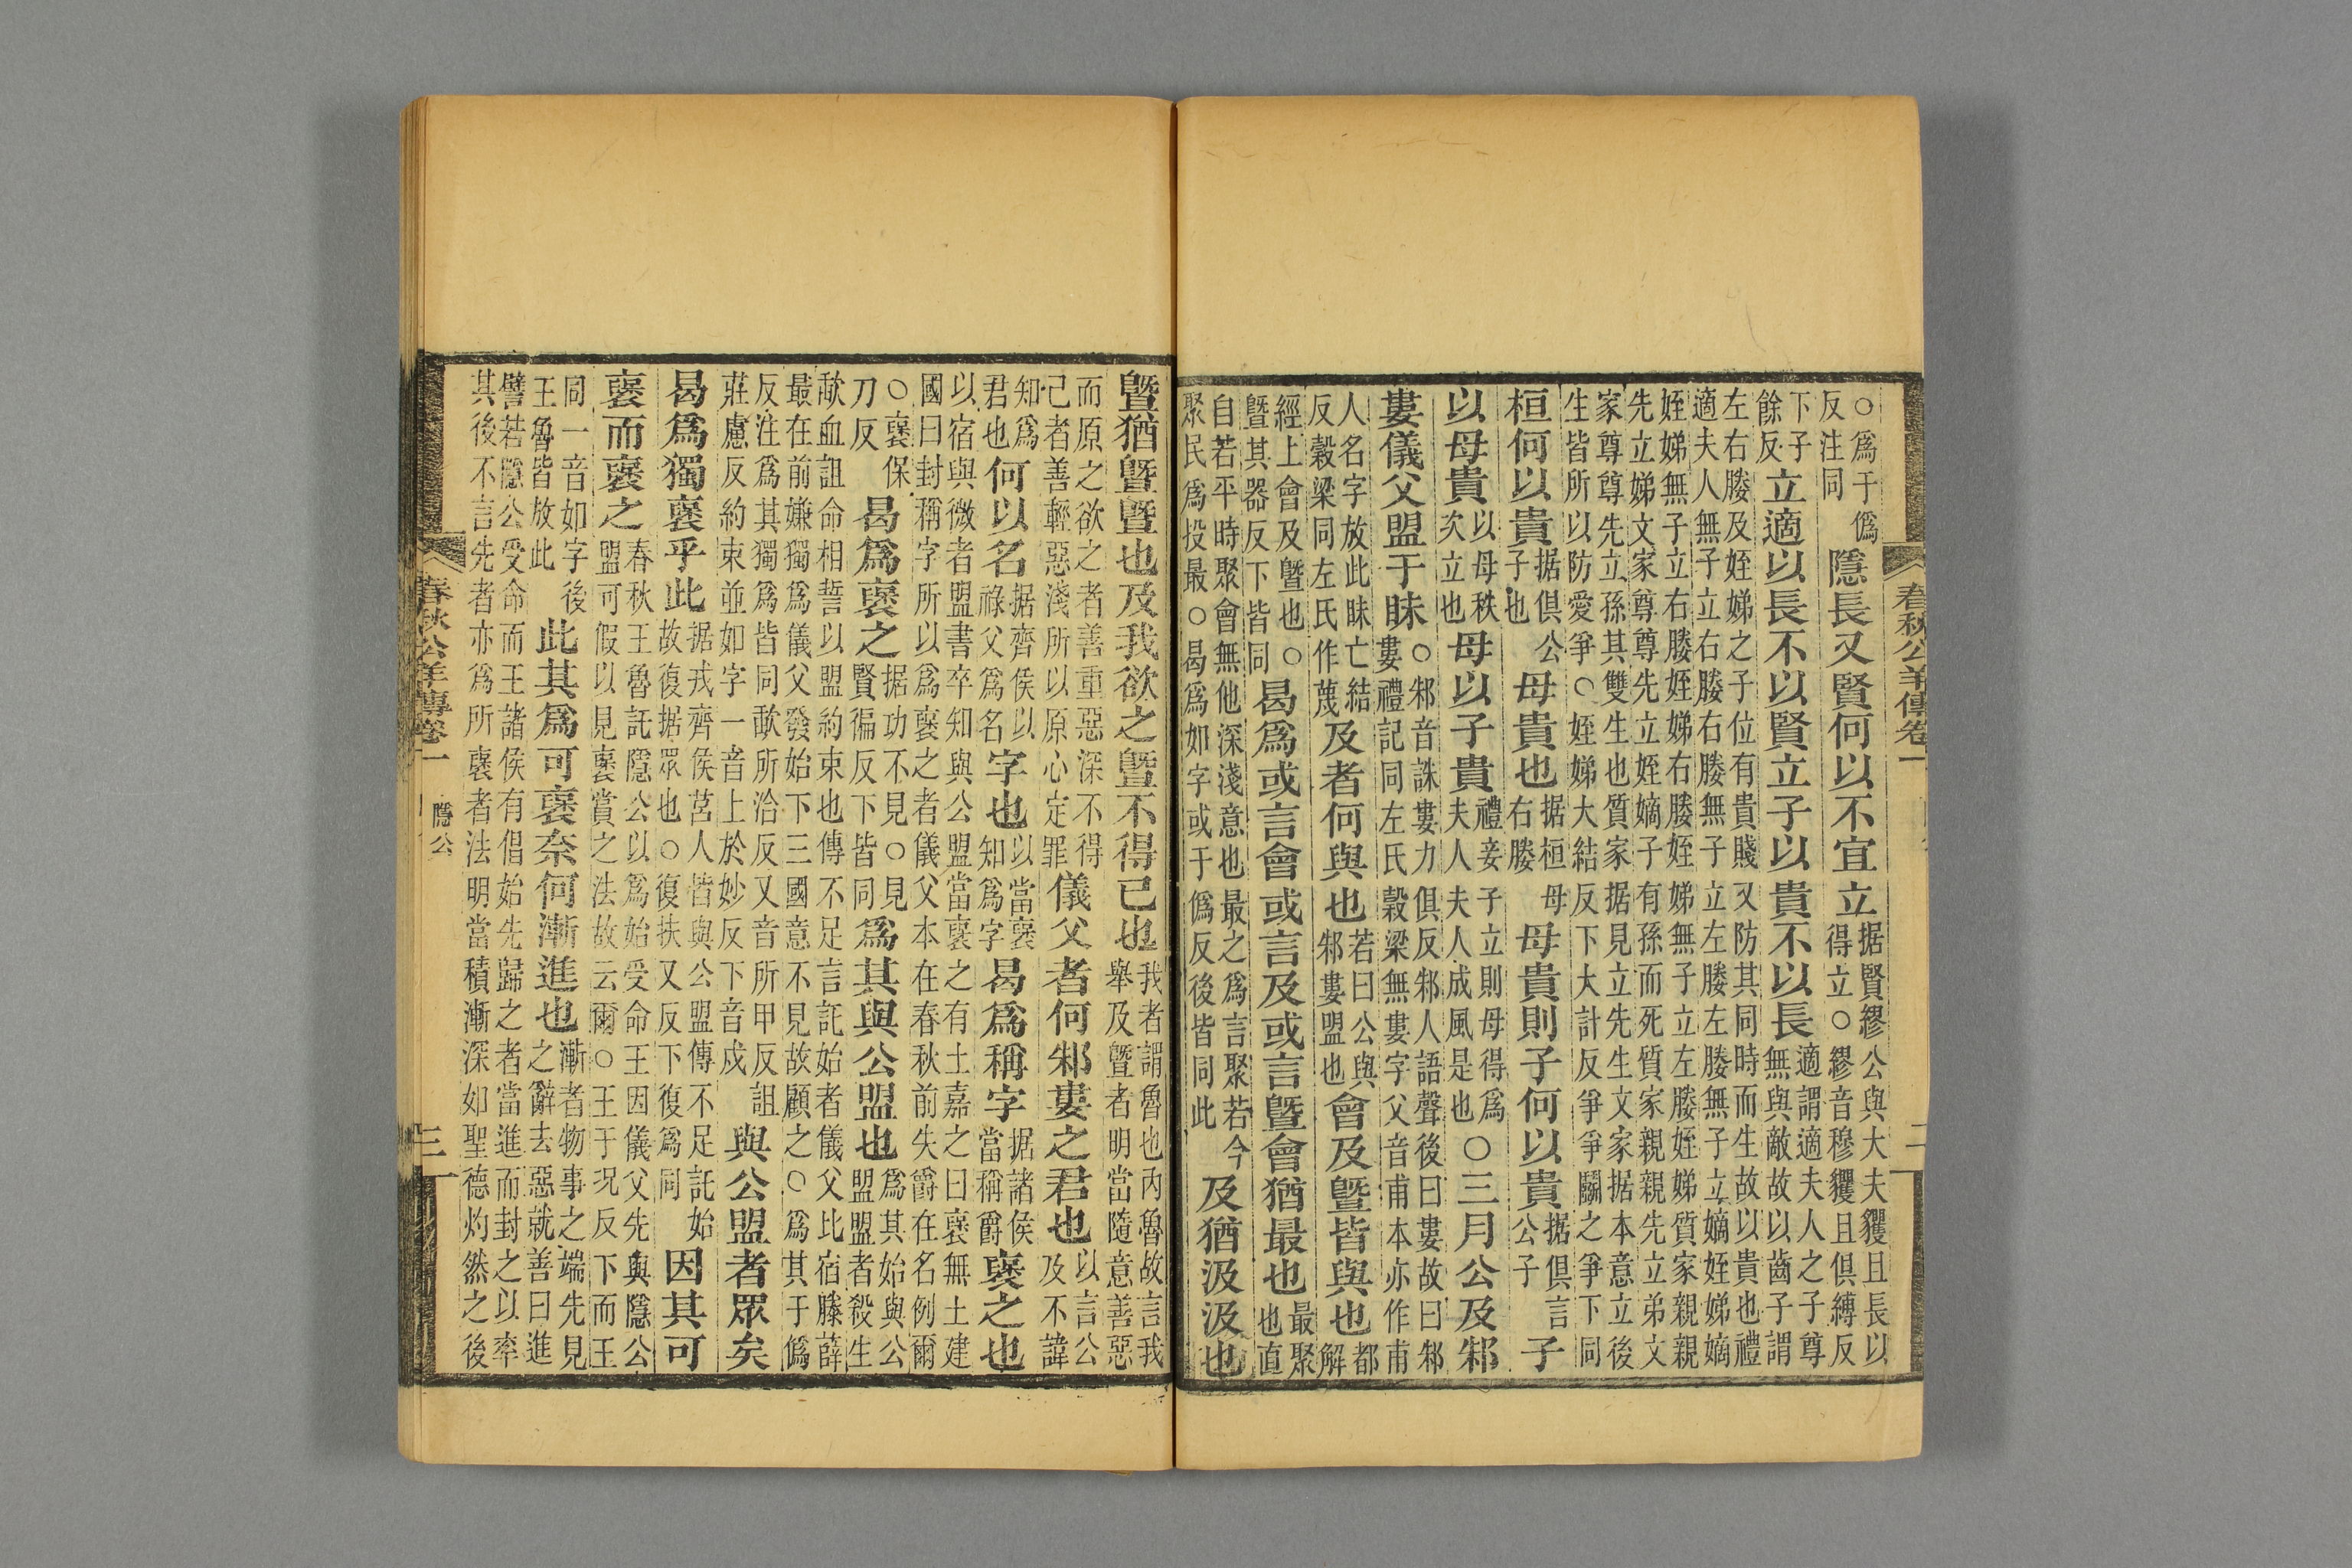 春秋公羊傳卷一 二
○爲于僞反注同隱長又賢何以不宜立据賢繆公與大夫貜且長以得立○繆音穆貜且俱縛反
下子餘反立適以長不以賢立子以貴不以長適謂適夫人之子尊無與敵故以齒子謂
左右媵及姪娣之子位有貴賤又防其同時而生故以貴也禮適夫人無子立右媵右媵無子立左媵左媵無子立嫡姪娣嫡
姪娣無子立右媵姪娣右媵姪娣無子立左媵姪娣質家親親先立娣文家尊尊先立姪嫡子有孫而死質家親親先立弟文
家尊尊先立孫其雙生也質家据見立先生文家据本意立後生皆所以防愛爭○姪娣大結反下大計反爭爭鬭之爭下同
桓何以貴据俱公子也母貴也据桓母右媵母貴則子何以貴据俱言公子子
以母貴以母秩次立也母以子貴禮妾子立則母得爲夫人夫人成風是也○三月公及邾
婁儀父盟于眛○邾音誅婁力俱反邾人語聲後曰婁故曰邾婁禮記同左氏穀梁無婁字父音甫本亦作甫
人名字放此眛亡結反穀梁同左氏作蔑及者何與也若曰公與邾婁盟也會及曁皆與也都解
經上會及曁也○曁其器反下皆同曷爲或言會或言及或言曁會猶最也最聚也直
自若平時聚會無他深淺意也最之爲言聚若今聚民爲投最○曷爲如字或于僞反後皆同此及猶汲汲也
曁猶曁曁也及我欲之曁不得已也我者謂魯也內魯故言我舉及曁者明當隨意善惡
而原之欲之者善重惡深不得己者善輕惡淺所以原心定罪儀父者何邾婁之君也以言公及不諱
知爲君也何以名据齊侯以祿父爲名字也以當褒知爲字曷爲稱字据諸侯當稱爵褒之也
以宿與微者盟書卒知與公盟當褒之有土嘉之曰褒無土建國曰封稱字所以爲褒之者儀父本在春秋前失爵在名例爾
○褒保刀反曷爲褒之据功不見○見賢徧反下皆同爲其與公盟也爲其始與公盟盟者殺生
歃血詛命相誓以盟約束也傳不足言託始者儀父比宿滕薛最在前嫌獨爲儀父發始下三國意不見故顧之○爲其于僞
反注爲其獨爲皆同歃所洽反又音所甲反詛莊慮反約束並如字一音上於妙反下音戍與公盟者眾矣
曷爲獨褒乎此据戎齊侯莒人皆與公盟傳不足託始故復据眾也○復扶又反下復爲同因其可
褒而褒之春秋王魯託隱公以爲始受命王因儀父先與隱公盟可假以見褒賞之法故云爾○王于況反下而王
同一音如字後王魯皆放此此其爲可褒奈何漸進也漸者物事之端先見之辭去惡就善曰進
譬若隱公受命而王諸侯有倡始先歸之者當進而封之以率其後不言先者亦爲所褒者法明當積漸深如聖德灼然之後
春秋公羊傳卷一 隱公 三